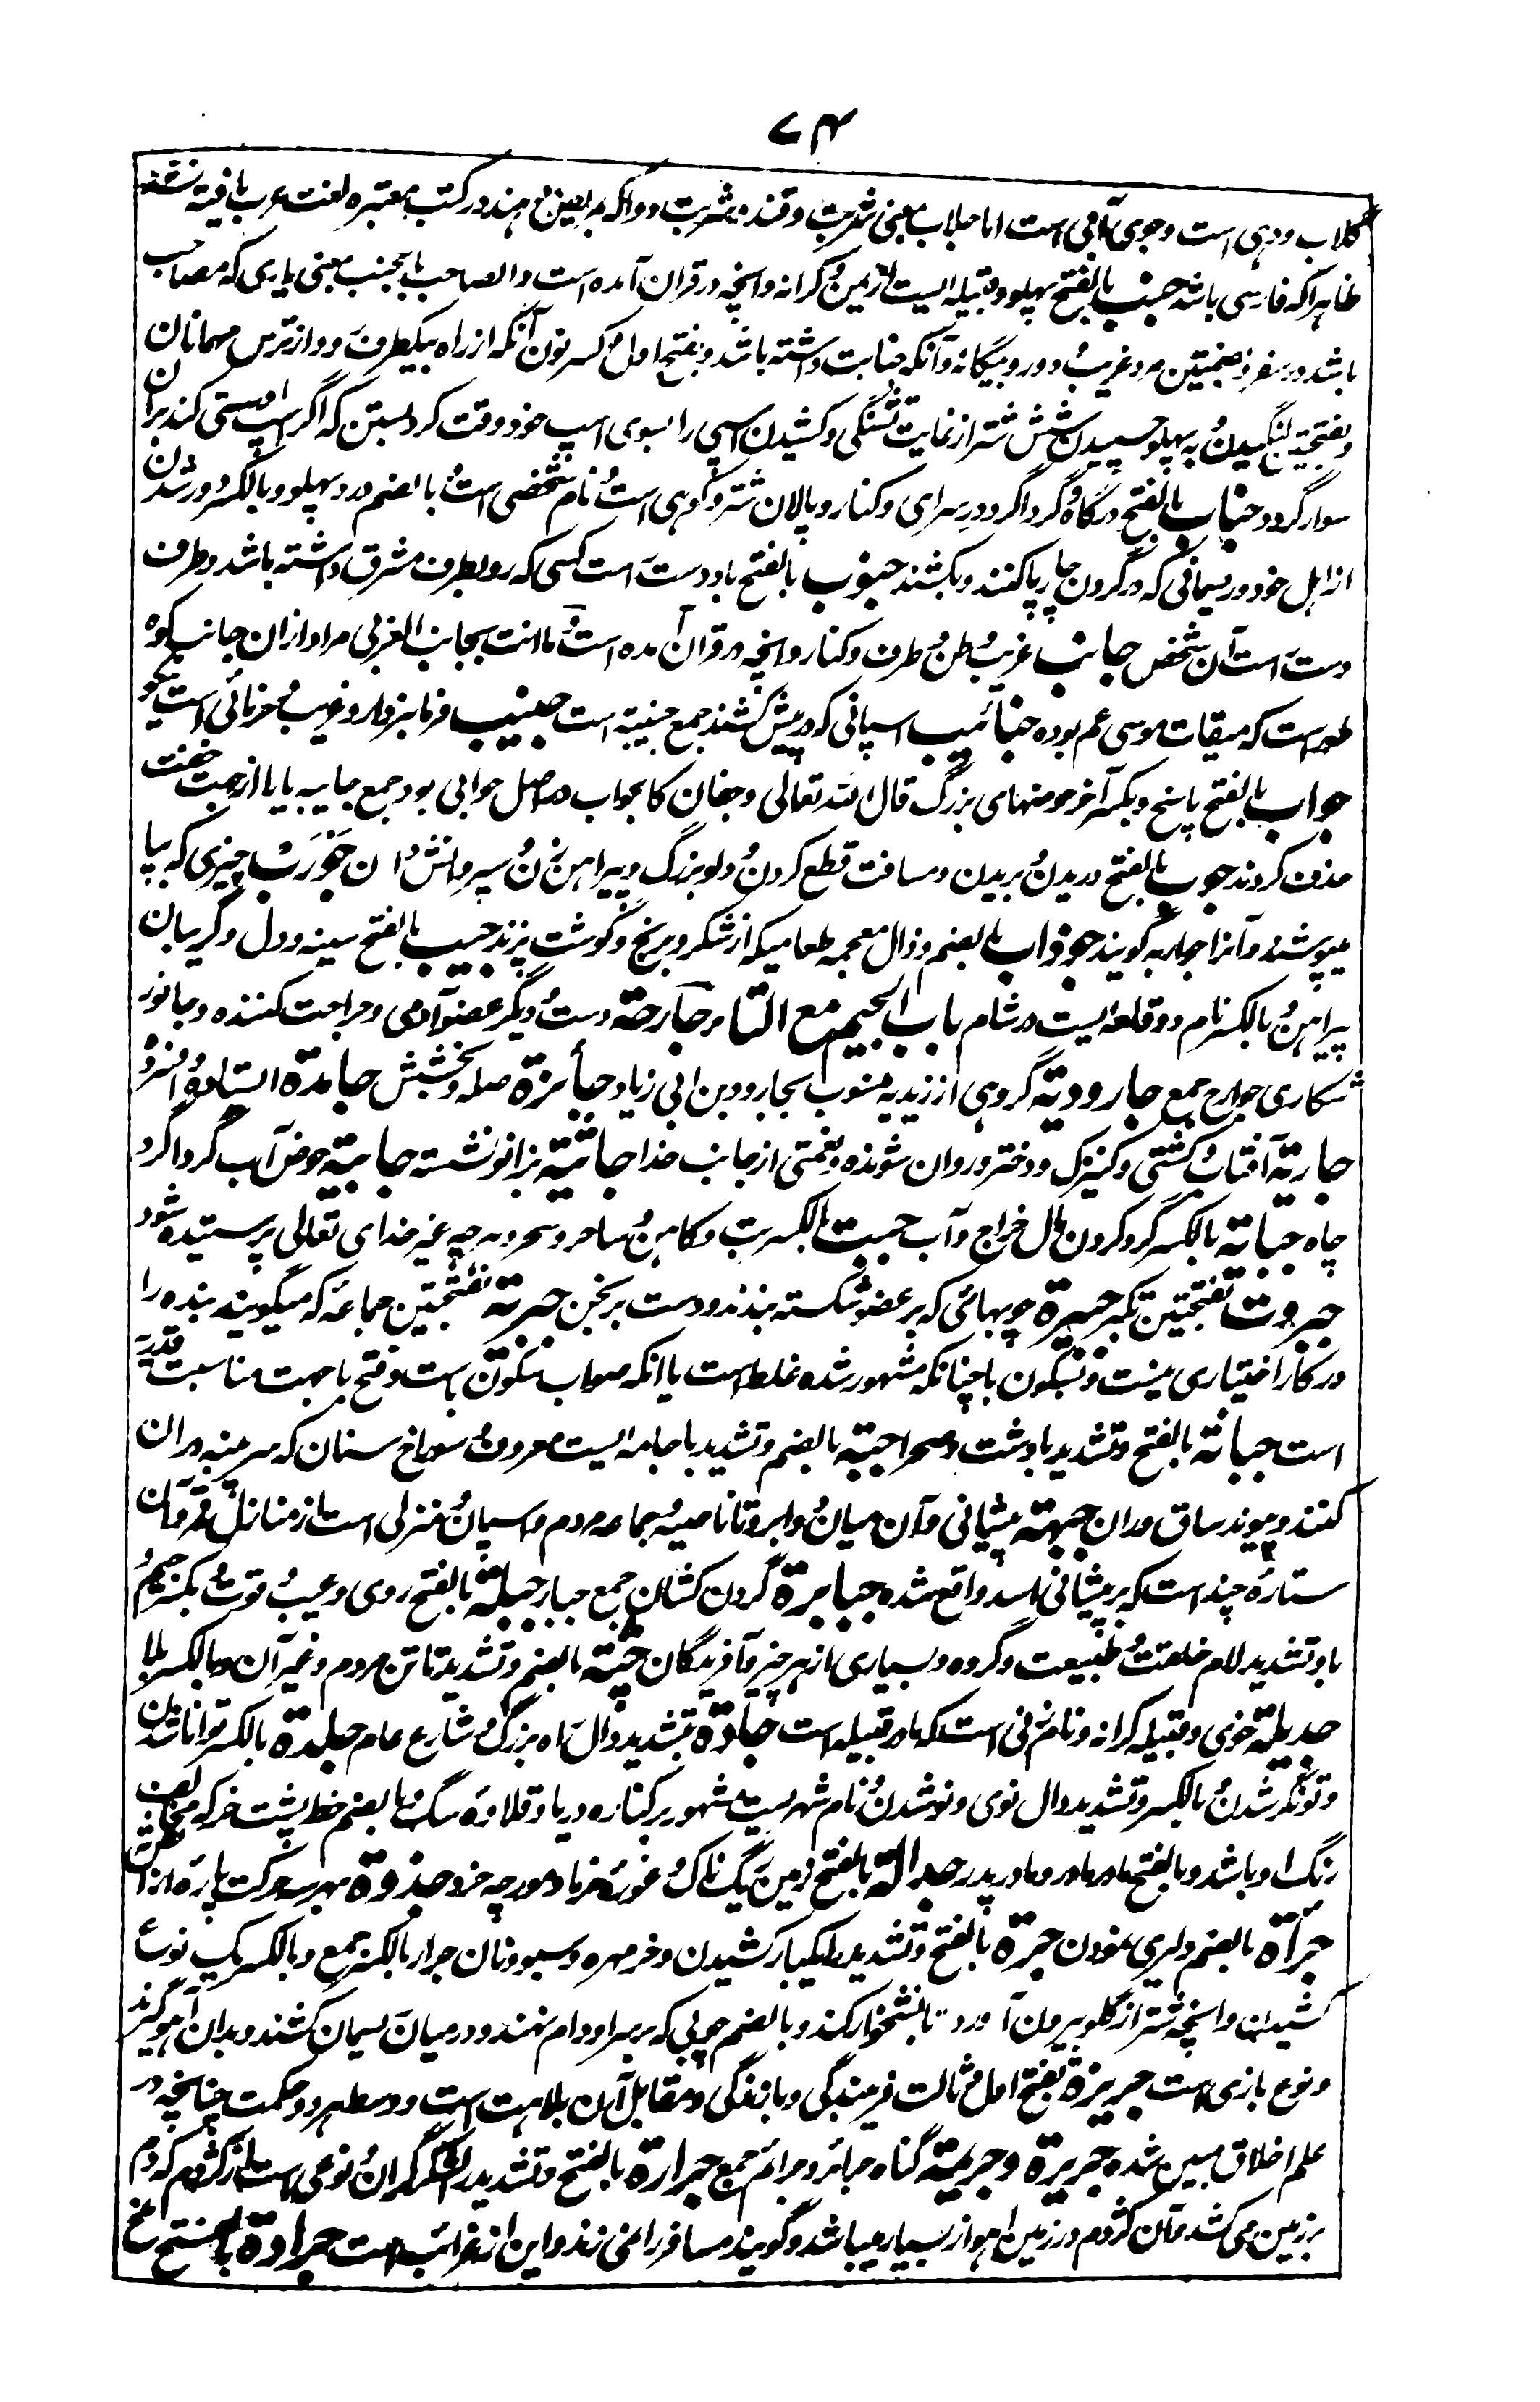 ۷۴
گلاب و دهی است و جوی آبی است اما جلاب بمعنی شربت و قند و شربت دوا که در بعضی هند در کتب معتبره لغت عرب یافته نشد
ظاهرا که فارسی باشد جنب بالفتح پهلو و قبیله ایست از یمن و کرانه و آنچه در قرآن آمده است و الصاحب بالجنب بمعنی یاری که مصاحب
باشد در سفر و بضمتین مرد غریب و دور و بیگانه و آنکه جنابت داشته باشد و بفتح اول و کسر نون آنکه از راه بیکطرف رود از ترس مهمانان
و بفتحتین لنگیدن و به پهلو چسپیدن شش شتر از غایت تشنگی و کشیدن اسپی را بسوی اسپ خود وقت گرو بستن که اگر اسپ سستی کند بران
سوار گردد جناب بالفتح درگاه و گرداگرد در سرای و کنار و پالان شتر و کوهی است و نام شخصی است و بالضم درد پهلو و بالکسر دور شدن
از اهل خود و ریسمانی که در گردن چارپا کنند و بکشند جنوب بالفتح باد دست راست کسی که رو بطرف مشرق داشته باشد و طرف
دست راست آن شخص جانب غریب وطن و طرف و کنار و آنچه در قرآن آمده است و ما کنت بجانب الغربی مراد ازان جانب کوه
طور است که میقات موسی عم بوده جنائیب اسپانی که در پیش کشند جمع جنیبة است جنیب فرمانبردار و غریب و خرمائی است نیکو
جواب بالفتح پاسخ و بکسر آخر حوضهای بزرگ قال الله تعالی و جفان کالجواب در اصل جوابی بود جمع جابیه یا را از جهت خفت
حذف کردند جوب بالفتح دریدن و بریدن و مسافت قطع کردن و دلو بزرگ و پیراهن زن و سپر و آتش دان جورب چیزی که بپا
میپوشند و آنرا جرابه گویند جوذاب بالضم و ذال معجمه طعامیکه از شکر و برنج و گوشت پزند جیب بالفتح سینه و دل و گریبان
پیراهن و بالکسر نام دو قلعه ایست در شام باب الجیم مع التاء جارحة دست و دیگر عضو آدمی و جراحت کننده و جانور
شکاری جوارح جمع جارودیة گروهی از زیدیه منسوب بجارود بن ابی زیاد جائزة صله و بخشش جامدة ایستاده و افسرده
جاریة آفتاب و کشتی و کنیزک و دختر و روان شونده و نعمتی از جانب خدا جاثیة بزانو نشسته جابیة حوض آب گرداگرد
چاه جبایة بالکسر گرد کردن مال خراج و آب جبت بالکسر بت و کاهن و ساحر و سحر و هر چه غیر خدای تعالی پرستیده شود
جبروت بفتحتین تکبر جبیرة چوبهائی که بر عضو شکسته بندند و دست برنجن جبریة بفتحتین جماعه که میگویند بنده را
در کار اختیاری نیست و بسکون با چنانکه مشهور شده غلط است یا آنکه صواب بسکون با است و فتح با جهت مناسبت قدریة
است جبانة بالفتح و تشدید با دشت و صحرا جبة بالضم و تشدید با جامه ایست معروف و سوراخ سنان که سر نیزه دران
کنند و پیوند ساق و ران جبهة پیشانی و آن میان دو ابرو تا ناصیه و جماعه مردم و اسپان و منزلی است از منازل قمر و آن
ستاره چند است که بر پیشانی اسد واقع شده جبابرة گردن کشان جمع جبار جبلة بالفتح روی و عیب و قوت و بکسر جیم و
با و تشدید لام خلقت و طبیعت و گروه و بسیاری از هر چیز و آفریدگان جثة بالضم و تشدید ثا تن مردم و غیر آن و بالکسر بلا
جدیلة خوی و قبیله و کرانه و نام زنی است که مادر قبیله است جادة بتشدید دال راه بزرگ و شارع عام جلدة بالکسر توانا شدن
و تونگر شدن و بالکسر و تشدید دال نوی و نو شدن و نام شهریست مشهور بر کناره دریا و قلاده سگ و بالضم خط پشت خر که مخالف
رنگ او باشد و بالفتح مادر مادر و مادر پدر جدالة بالفتح زمین ریگ ناک و غوره خرما و مورچه خرد جذوة بهر سه حرکت پاره از آتش
جرأة بالضم دلیری نمودن جرة بالفتح و تشدید را یکبار کشیدن و خر مهره و سبو و نان جرار بالکسر جمع و بالکسر یک نوع
کشیدن و آنچه شتر از گلو بیرون آورد تا نشخوار کند و بالضم چوبی که بر سر او دام نهند و در میان ریسمان کشند و بدان آهو گیرند
و نوع بازی است جریزة بفتح اول و ثالث فریبندگی و بازندگی و مقابل آن بلاهت است و وسط هر دو حکمت چنانچه در
علم اخلاق مبین شده جریرة و جریمة گناه جرائر و جرائم جمع جرارة بالفتح و تشدید را لشکر گران و نوعی است از کژدم که دم
بر زمین می کشد و آن کژدم در زمین اهواز بسیار میباشد و گویند مسافر را نمی زند و این از غرائب است جرادة بالفتح ملخ